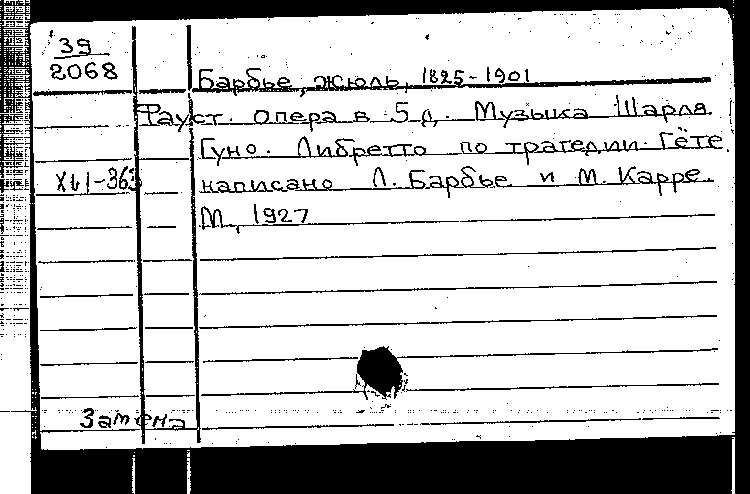 39
2068
Барбье, Жюль, 1825-1901
Фауст. Опера в 5 д. Музыка Шарля
Гуно. Либретто по трагедии Гёте
XLI-363
написано Л. Барбье и М. Карре.
М., 1927
Замена